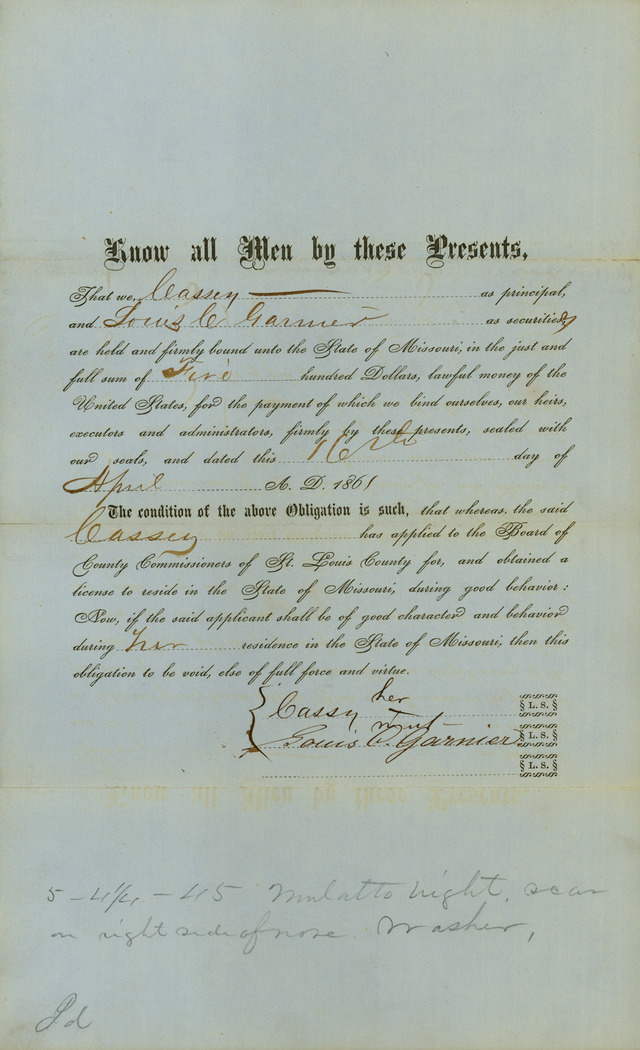 Know all Men by these Presents,
That we, Cassey as principal,
and Louis C Garnier as securities,
are held and firmly bound unto the State of Missouri, in the just and
full sum of Five hundred Dollars, lawful money of the
United States, for the payment of which we bind ourselves, our heirs,
executors and administrators, firmly by these presents, sealed with
our seals, and dated this 16th day of
April A. D. 1861
The condition of the above Obligation is such, that whereas, the said
Cassey has applied to the Board of
County Commissioners of St. Louis County for, and obtained a
license to reside in the State of Missouri, during good behavior:
Now, if the said applicant shall be of good character and behavior
during her residence in the State of Missouri, then this
obligation to be void, else of full force and virtue.
Cassy her § L. S. §
Louis C. Garnier § L. S. §
§ L. S. §
5-4¼-45 Mulatto scar
on right side of nose. Washer,
Pd